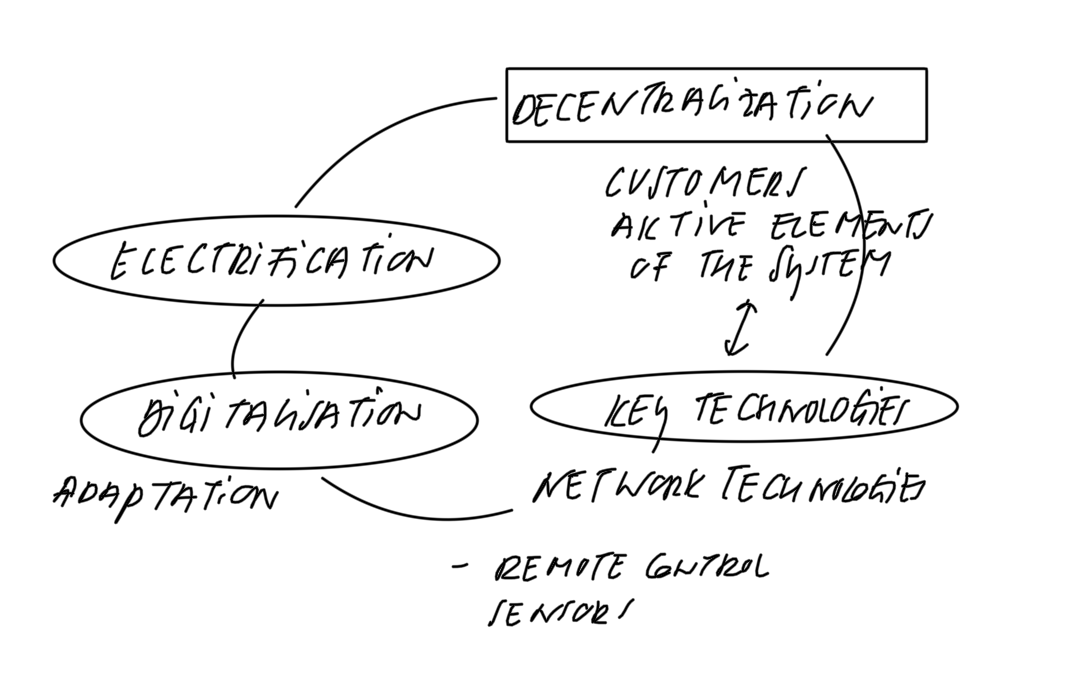 DECENTRALIZATION
CUSTOMERS
AKTIVE ELEMENTS
OF THE SYSTEM
ELECTRIFICATION
DIGITALISATION
KEY TECHNOLOGIES
ADAPTATION
NETWORK TECHNOLOGIES
- REMOTE CONTROL
SENSORS